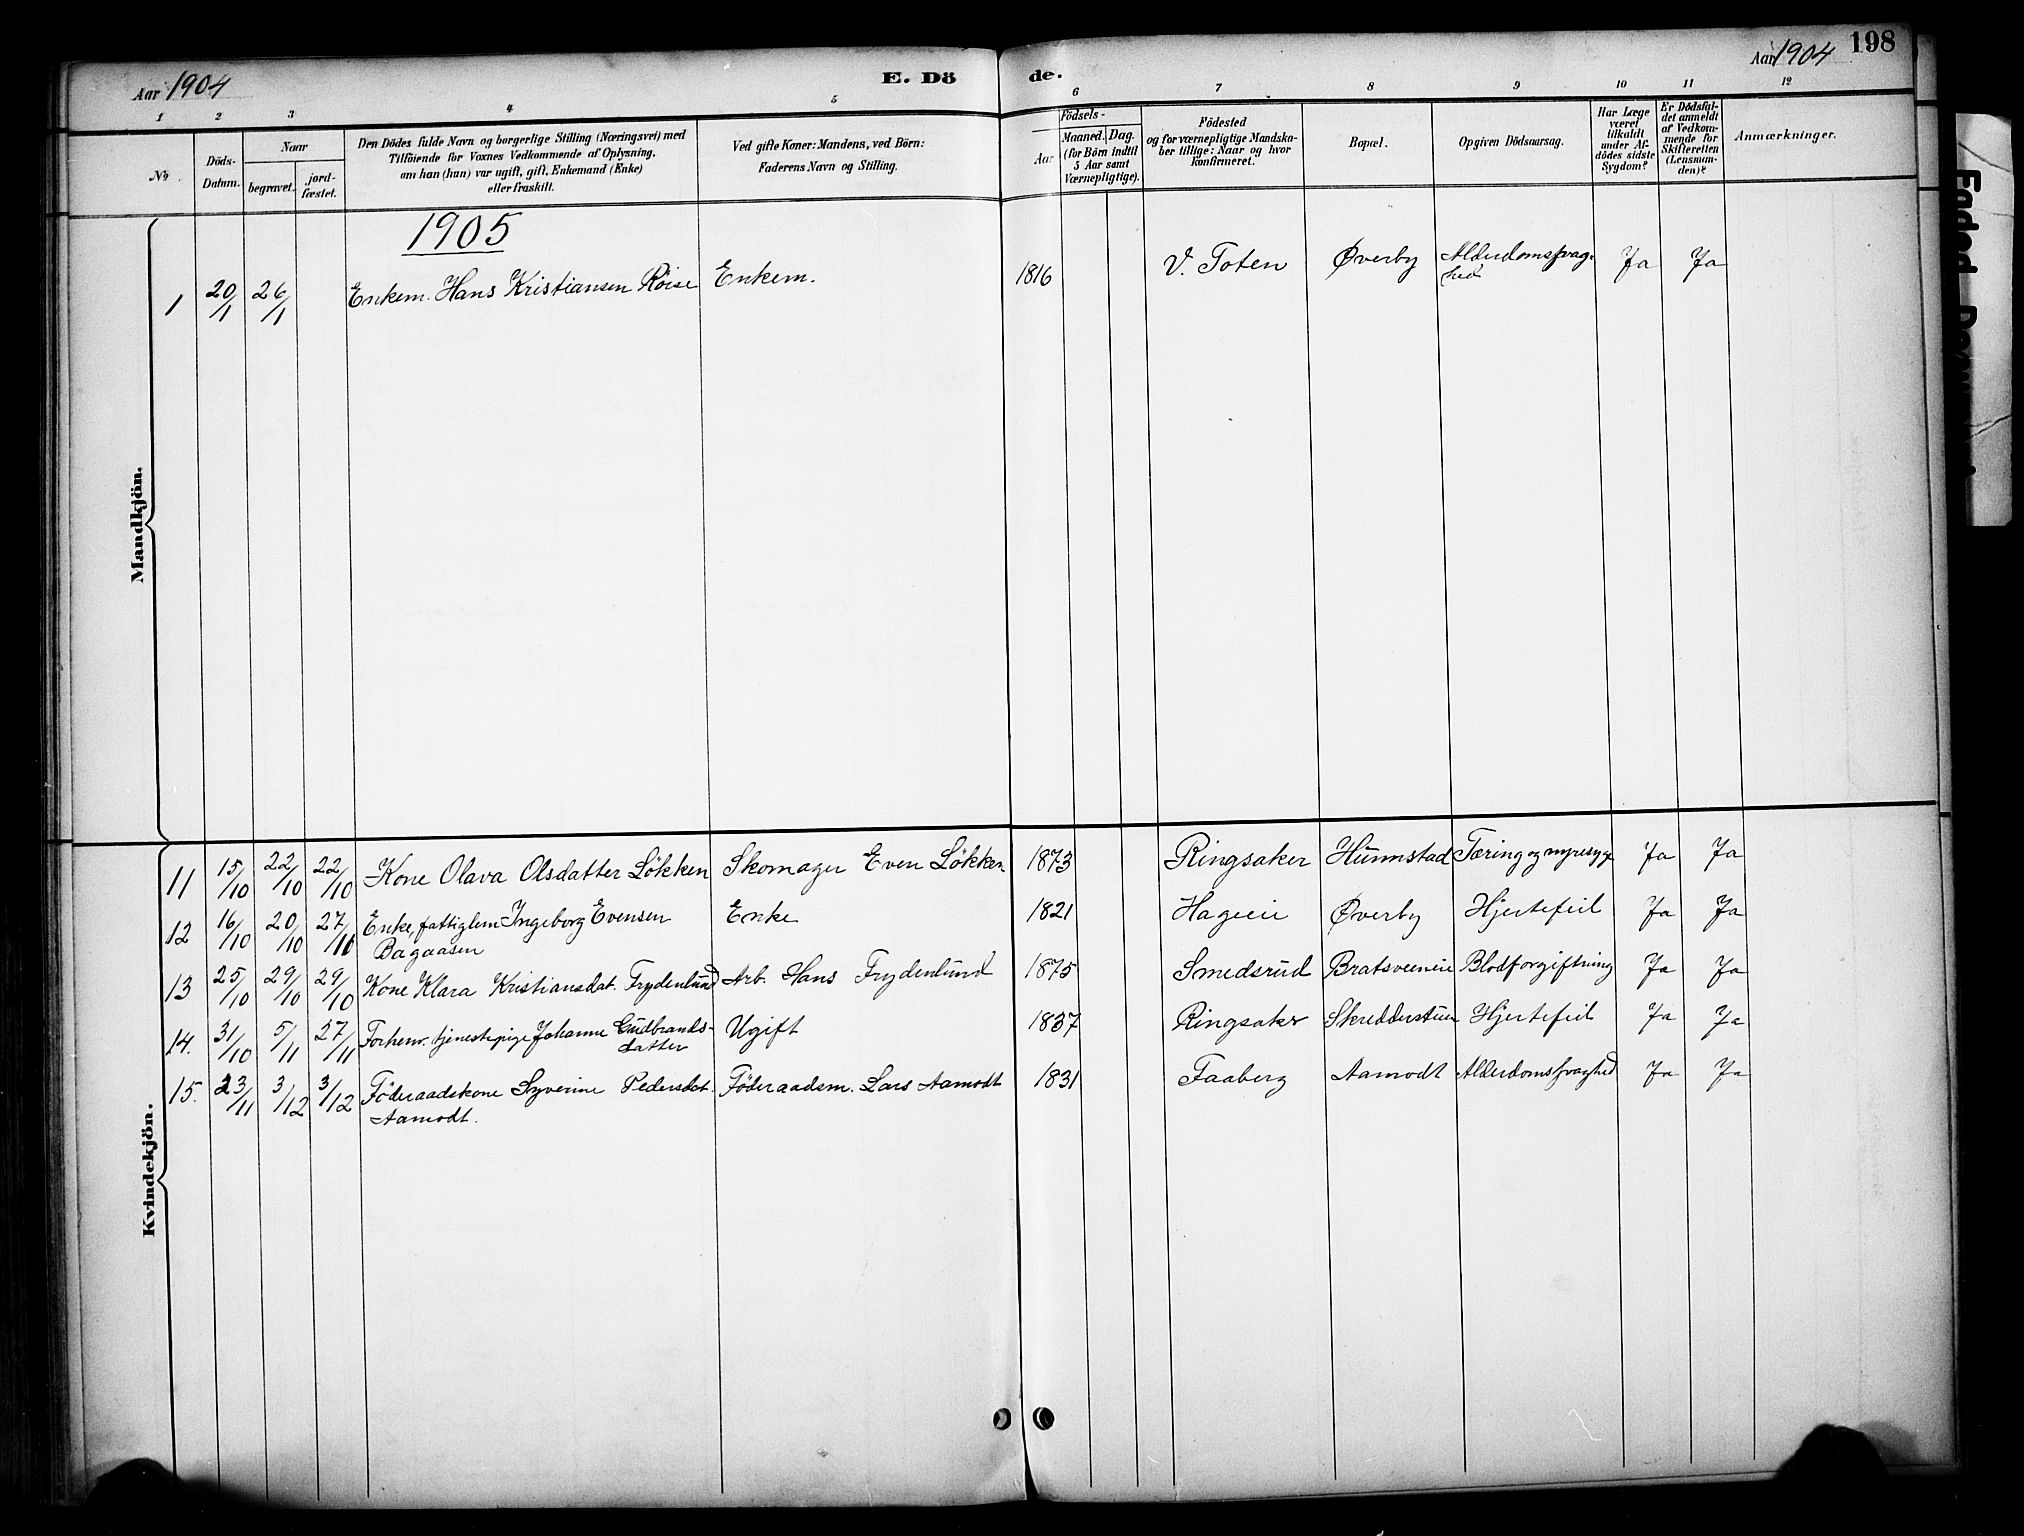 198
Aar 1904
E. Dö de.
Aar 1904
1 2 3 4 5 6 7 8 9 10 11 12
No.
Döds-
Datum.
Naar
begravet.
jord-
fæstet.
Den Dödes fulde Navn og borgerlige Stilling (Næringsvei) med
Tilföiende for Voxnes Vedkommende af Oplysning,
om han (hun) var ugift, gift, Enkemand (Enke)
eller fraskilt.
Ved gifte Koner: Mandens, ved Börn:
Faderens Navn og Stilling.
Födsels-
Aar
Maaned. Dag.
(for Börn indtil
5 Aar samt
Værnepligtige).
Födested
og for værnepligtige Mandska-
ber tillige: Naar og hvor
konfirmeret.
Bopæl.
Opgiven Dödsaarsag.
Har Læge
været
tilkaldt
under Af-
dödes sidste
Sygdom?
Er Dödsfal-
det anmeldt
af Vedkom-
mende for
Skifteretten
(Lensman-
den)?
Anmærkninger.
Mandkjön.
1905
1 20/1 26/1 Enkem. Hans Kristiansen Röise Enkem. 1816 V. Toten Øverby Alderdomssvag-
hed Ja Ja
Kvindekjön.
11 15/10 22/10 22/10 Kone Olava Olsdatter Lökken Skomager Even Lökken 1873 Ringsaker Hunnstad Tæring og nyresyge Ja Ja
12 16/10 20/10 27/10 Enke, fattiglem Ingeborg Evensen Enke 1821 Hageeie Øverby Hjertefeil Ja Ja
Bagaasen
13 25/10 29/10 29/10 Kone Klara Kristiansdat. Frydenlund Arb. Hans Frydenlund 1875 Smedsrud Bratsveeneie Blodforgiftning Ja Ja
14. 31/10 5/11 27/11 Forhenv. tjenestepige Johanne Gudbrands-
datter Ugift 1837 Ringsaker Skredderstuen Hjertefeil Ja Ja
15. 23/11 3/12 3/12 Föderaadskone Syverine Pedersdat. Föderaadsm. Lars Aamodt 1831 Faaberg Aamodt Alderdomssvaghed Ja Ja
Aamodt.